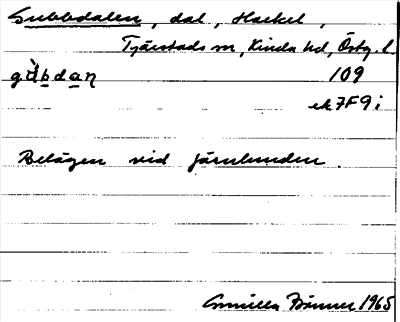 Gubbdalen, dal, Hackel,
Tjärstads sn, Kinda hd, Östg. l.
gùbdan 109
ek 7F9i
Belägen vid Järnlunden.
Gunilla 1965